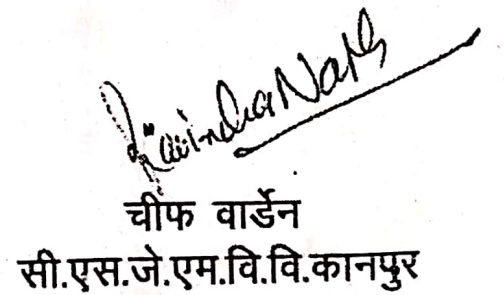 Ravindra Nath
चीफ वार्डेन
सी.एस.जे.एम.वि.वि.कानपुर